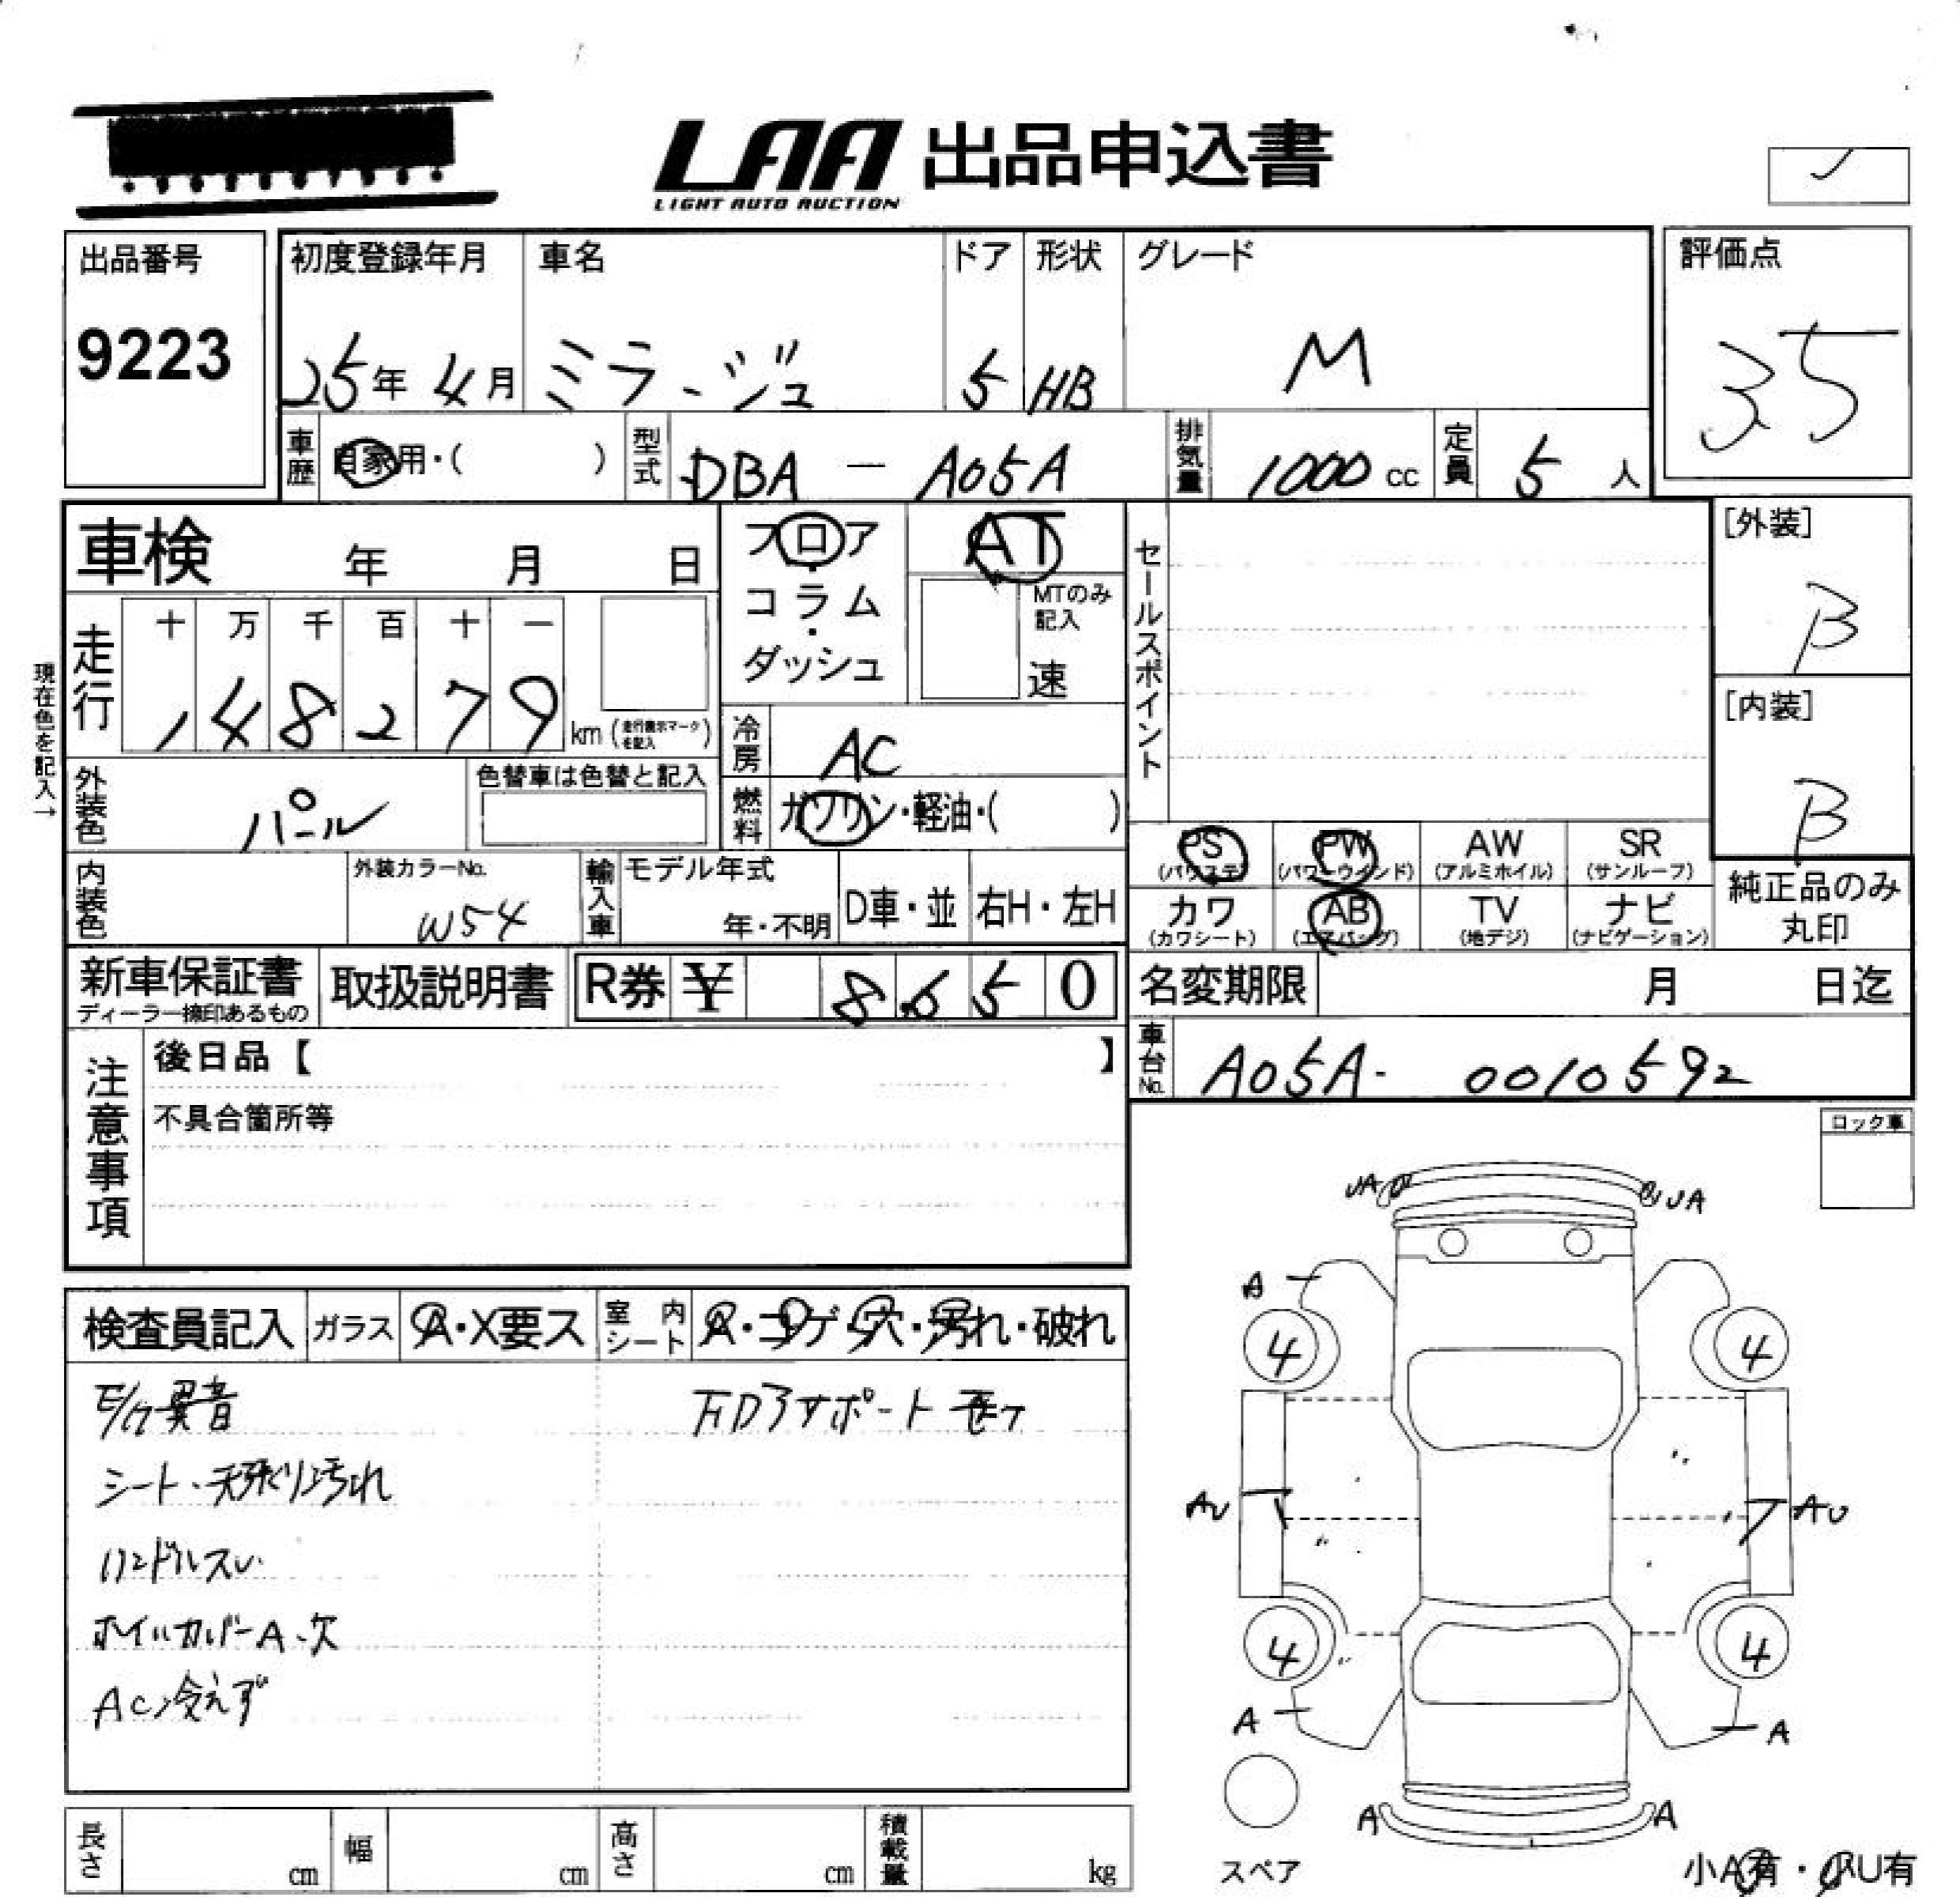 LAA 出品申込書
LIGHT AUTO AUCTION
出品番号
9223
初度登録年月
25年 4月
車名
ミラージュ
ドア
5
形状
HB
グレード
M
評価点
35
車歴
自家用・( )
型式
DBA - A05A
排気量
1000 cc
定員
5 人
車検 年 月 日
フロア・コラム・ダッシュ
AT
MTのみ記入
速
セールスポイント
[外装]
B
[内装]
B
現在色を記入→
走行
十 万 千 百 十 一
1 4 8 2 7 9
km (走行表示マークを記入)
冷房
AC
外装色
パール
色替車は色替と記入
燃料
ガソリン・軽油・( )
PS (パワステ)
PW (パワーウインド)
AW (アルミホイル)
SR (サンルーフ)
カワ (カワシート)
AB (エアバッグ)
TV (地デジ)
ナビ (ナビゲーション)
純正品のみ丸印
内装色
外装カラーNo.
W54
輸入車
モデル年式
年・不明
D車・並
右H・左H
新車保証書
ディーラー捺印あるもの
取扱説明書
R券 ¥ 8650
名変期限 月 日迄
車台No.
A05A- 0010592
注意事項
後日品【 】
不具合箇所等
ロック車
検査員記入
ガラス
A・X要ス
室内シート
A・コゲ・穴・汚れ・破れ
異音
シート・天張り汚れ
ハンドルスレ
ホイルカバーA、欠
AC冷えず
サポート
UA
UA
A
4
4
AU
AU
4
4
A
A
A
A
スペア
小A有・小U有
長さ cm
幅 cm
高さ cm
積載量 kg